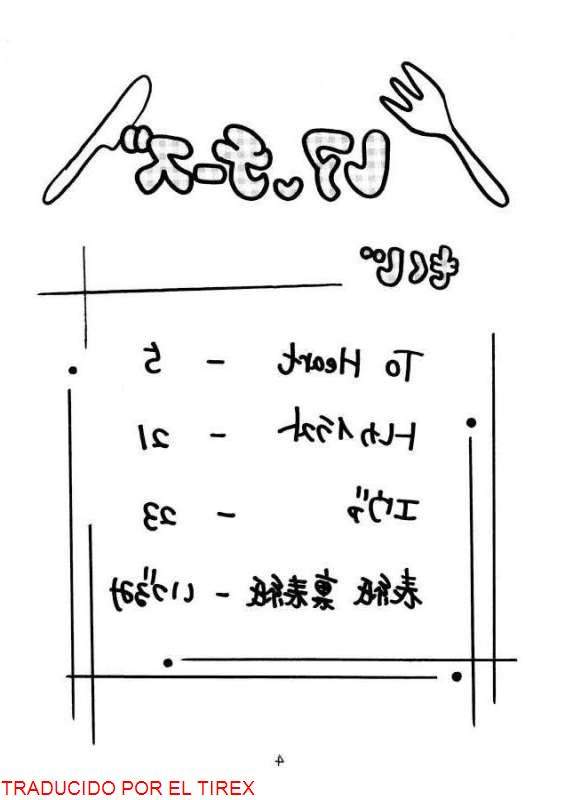 レア・チーズ
もくじ
To Heart - 5
トレカイラスト - 21
エヴァ - 23
表紙 裏表紙 - いづるみ
4
TRADUCIDO POR EL TIREX